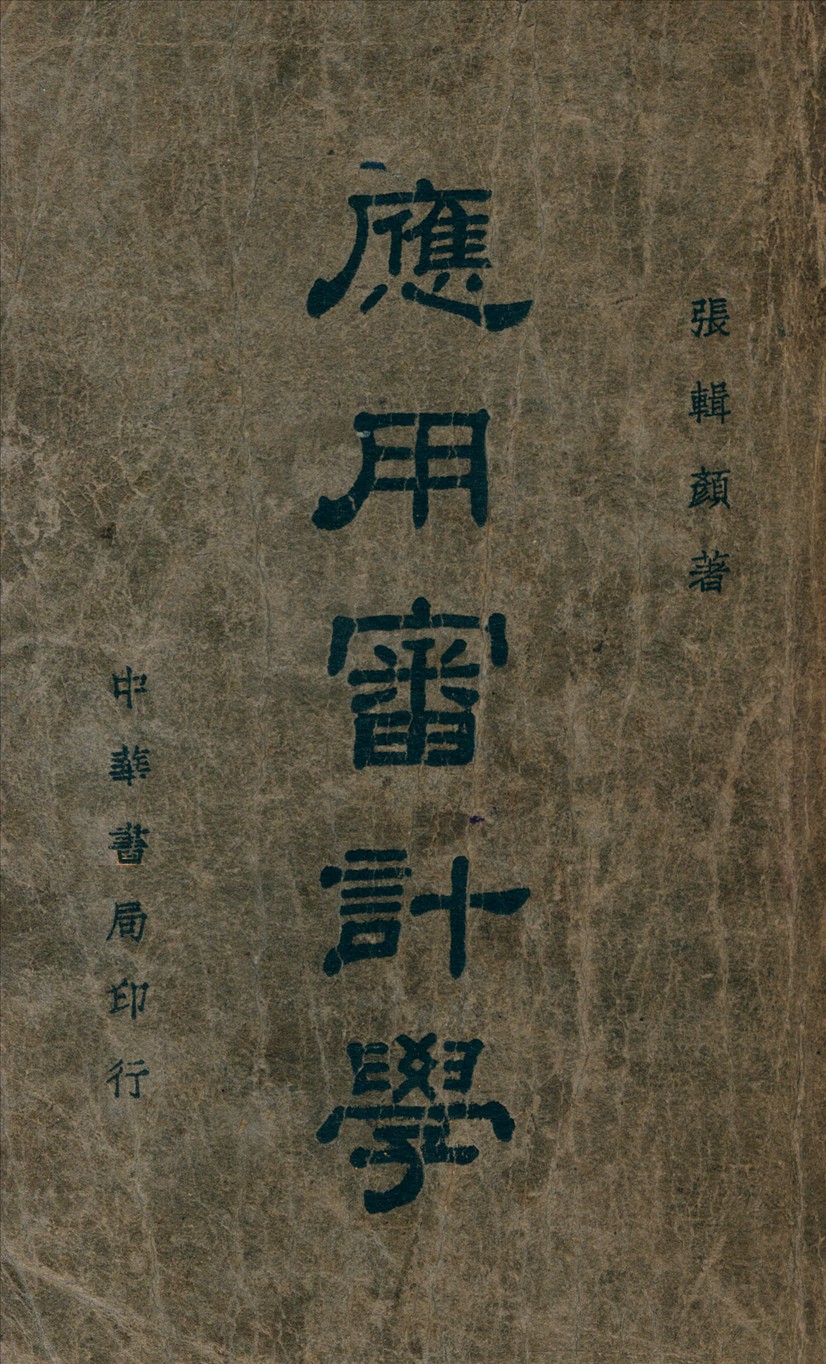 張輯顏著
應用審計學
中華書局印行